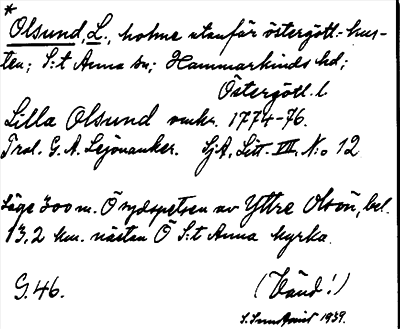 *
Olsund, L., holme utanför östergötl.-kus-
ten; S:t Anna sn; Hammarkinds hd;
Östergötl. l
Lilla Olsund omkr. 1774-76.
Trol. G. A. Lejonanker. SjA, Litt. VII, N:o 12
Läge 300 m. Ö sydspetsen av Yttre Olsön, bel.
13,2 km. nästan Ö S:t Anna kyrka.
G. 46.
(Vänd!)
1939.